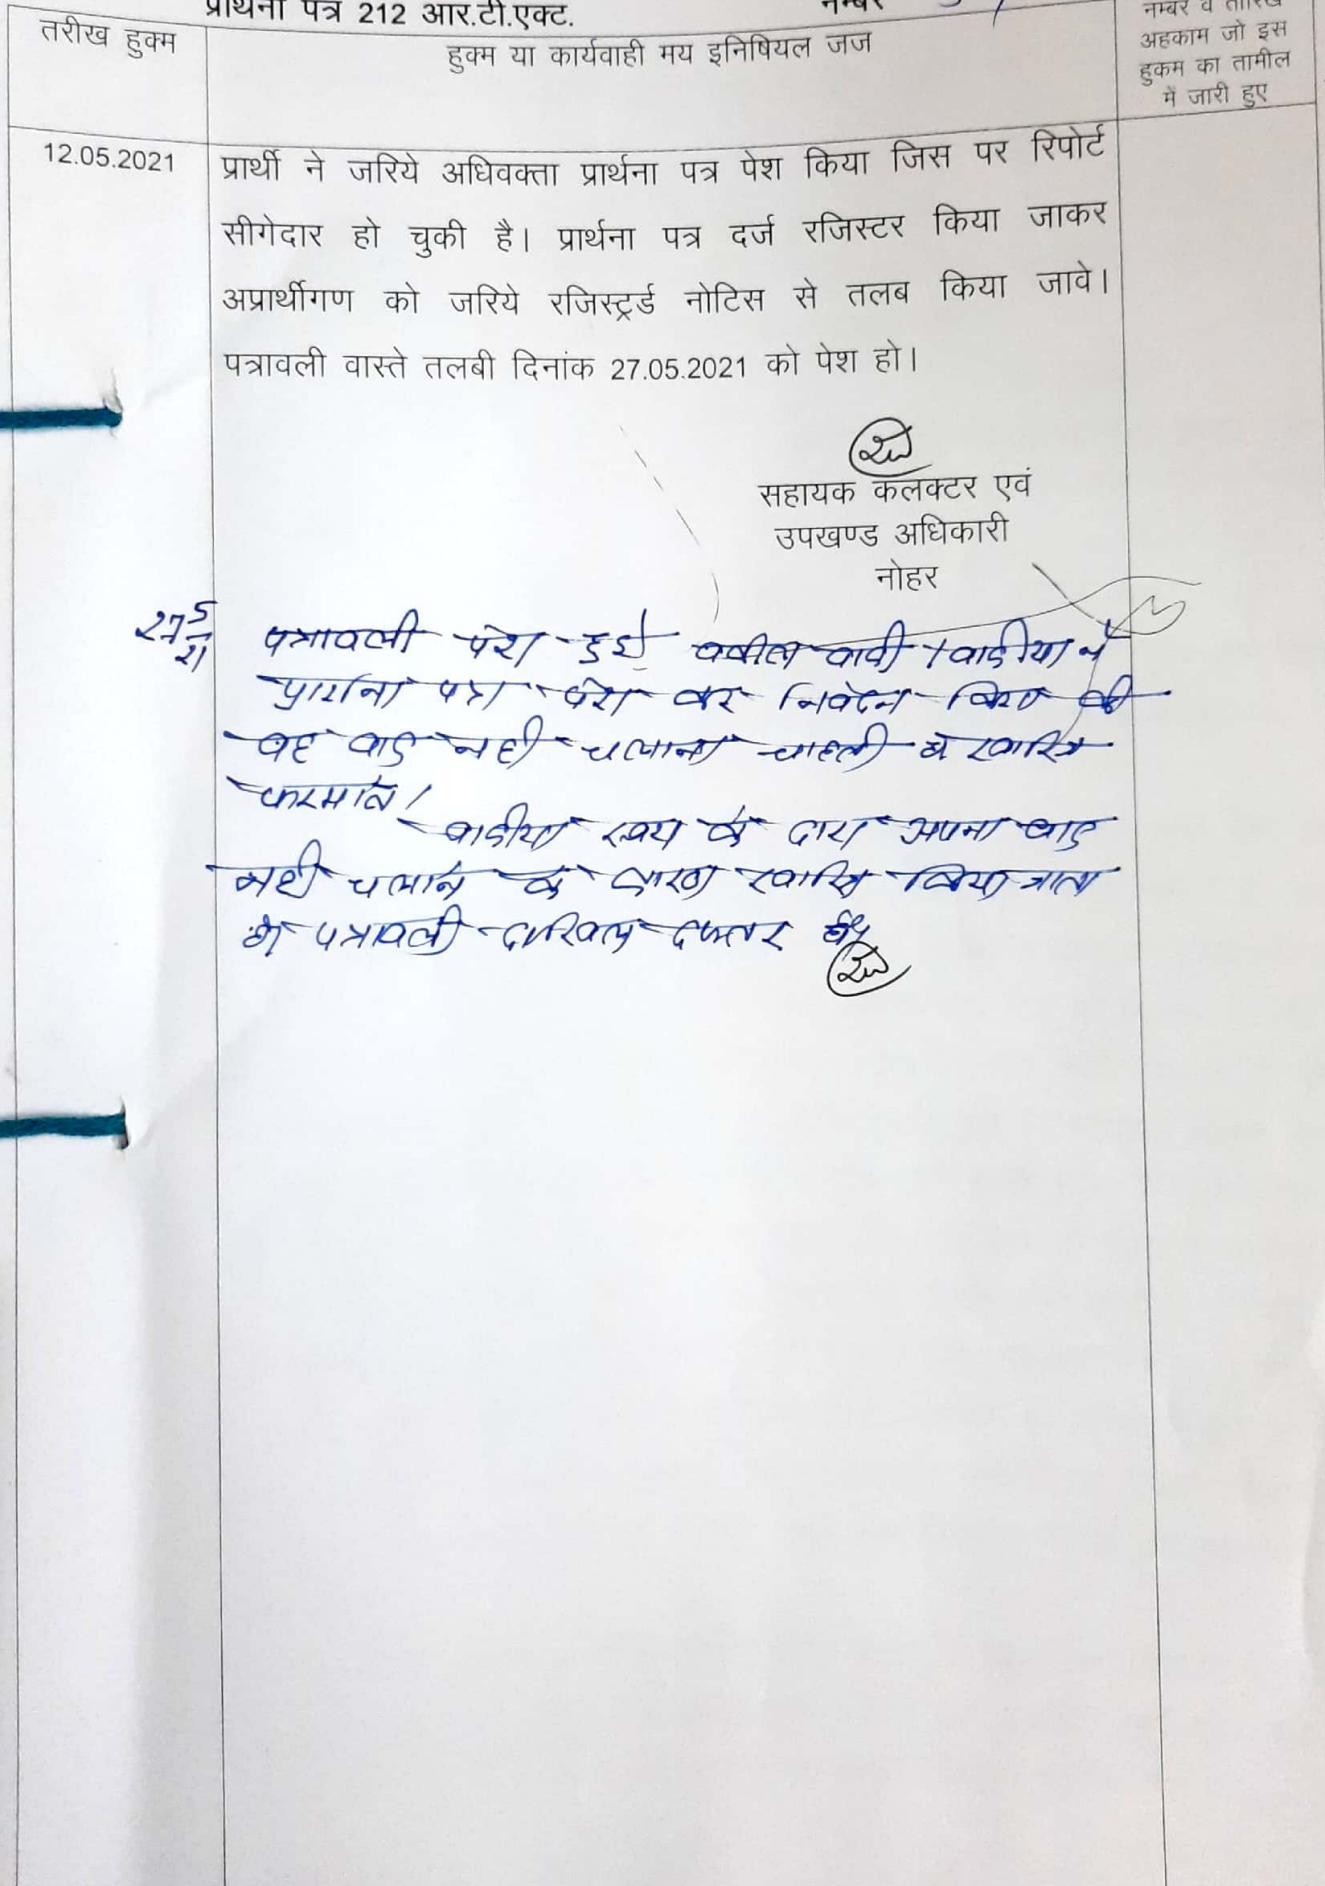 प्रार्थना पत्र 212 आर.टी.एक्ट.
नम्बर
तरीख हुक्म
हुक्म या कार्यवाही मय इनिषियल जज
नम्बर व तारिख
अहकाम जो इस
हुकम का तामील
में जारी हुए
12.05.2021
प्रार्थी ने जरिये अधिवक्ता प्रार्थना पत्र पेश किया जिस पर रिपोर्ट
सीगेदार हो चुकी है। प्रार्थना पत्र दर्ज रजिस्टर किया जाकर
अप्रार्थीगण को जरिये रजिस्ट्रर्ड नोटिस से तलब किया जावे।
पत्रावली वास्ते तलबी दिनांक 27.05.2021 को पेश हो।
सहायक कलक्टर एवं
उपखण्ड अधिकारी
नोहर
27/5/21
पत्रावली पेश हुई वकील वादी । वादीया ने
प्रार्थना पत्र पेश कर निवेदन किया की
वह वाद नही चलाना चाहती है खारिज
फरमावे।
वादीया स्वय के द्वारा अपना वाद
नही चलाने के कारण खारिज किया जाता
है पत्रावली दाखिल दफ्तर हो।